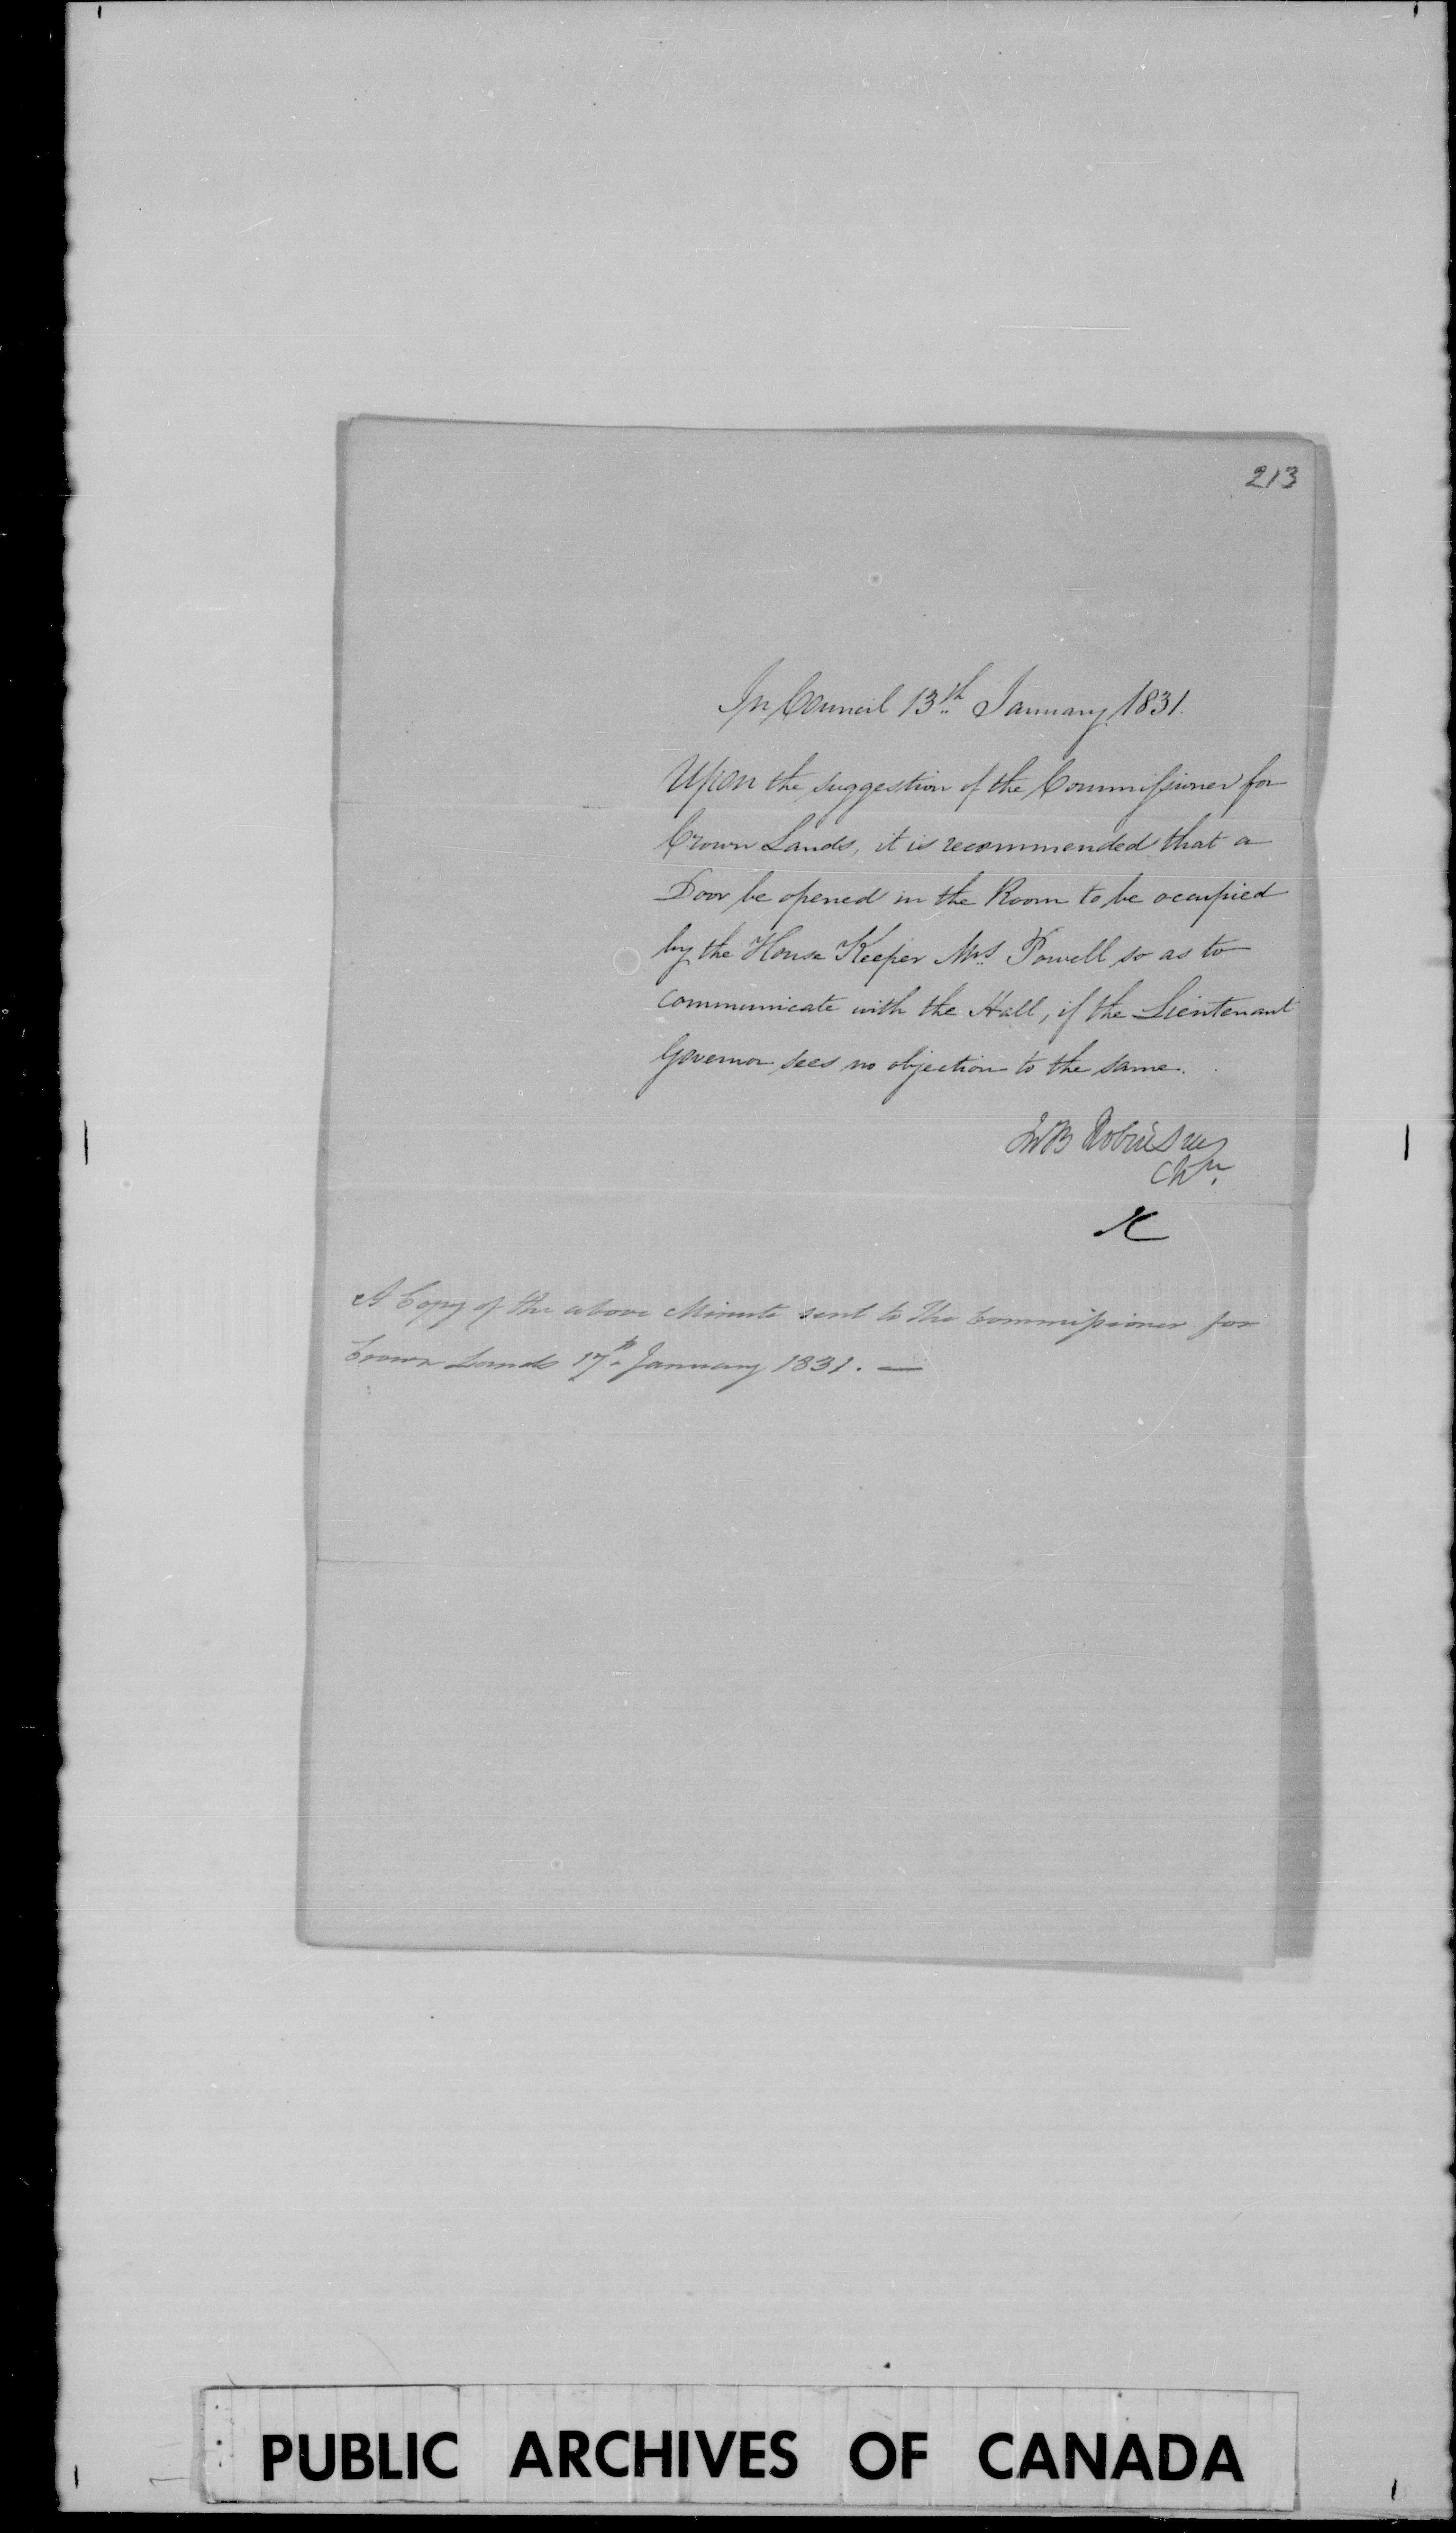 213
In Council 13th January 1831.
Upon the suggestion of the Commissioner for
Crown Lands, it is recommended that a
Door be opened in the Room to be occupied
by the House Keeper Mrs Powell so as to
communicate with the Hall, if the Lieutenant
Governor sees no objection to the same.
Jno B Robinson
Chn.
A Copy of the above Minute sent to the Commissioner for
Crown Lands 17th January 1831. —
PUBLIC ARCHIVES OF CANADA